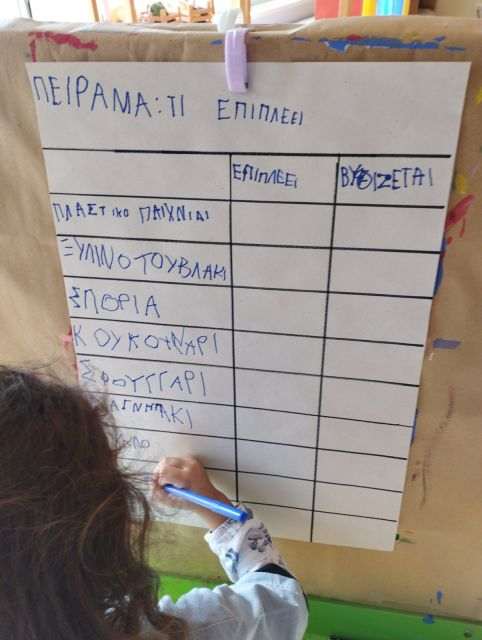 ΠΕΙΡΑΜΑ: ΤΙ ΕΠΙΠΛΕΕΙ
ΕΠΙΠΛΕΕΙ ΒΥΘΙΖΕΤΑΙ
ΠΛΑΣΤΙΚΟ ΠΑΙΧΝΙΔΙ
ΞΥΛΙΝΟ ΤΟΥΒΛΑΚΙ
ΣΠΟΡΙΑ
ΚΟΥΚΟΥΝΑΡΙ
ΣΦΟΥΓΓΑΡΙ